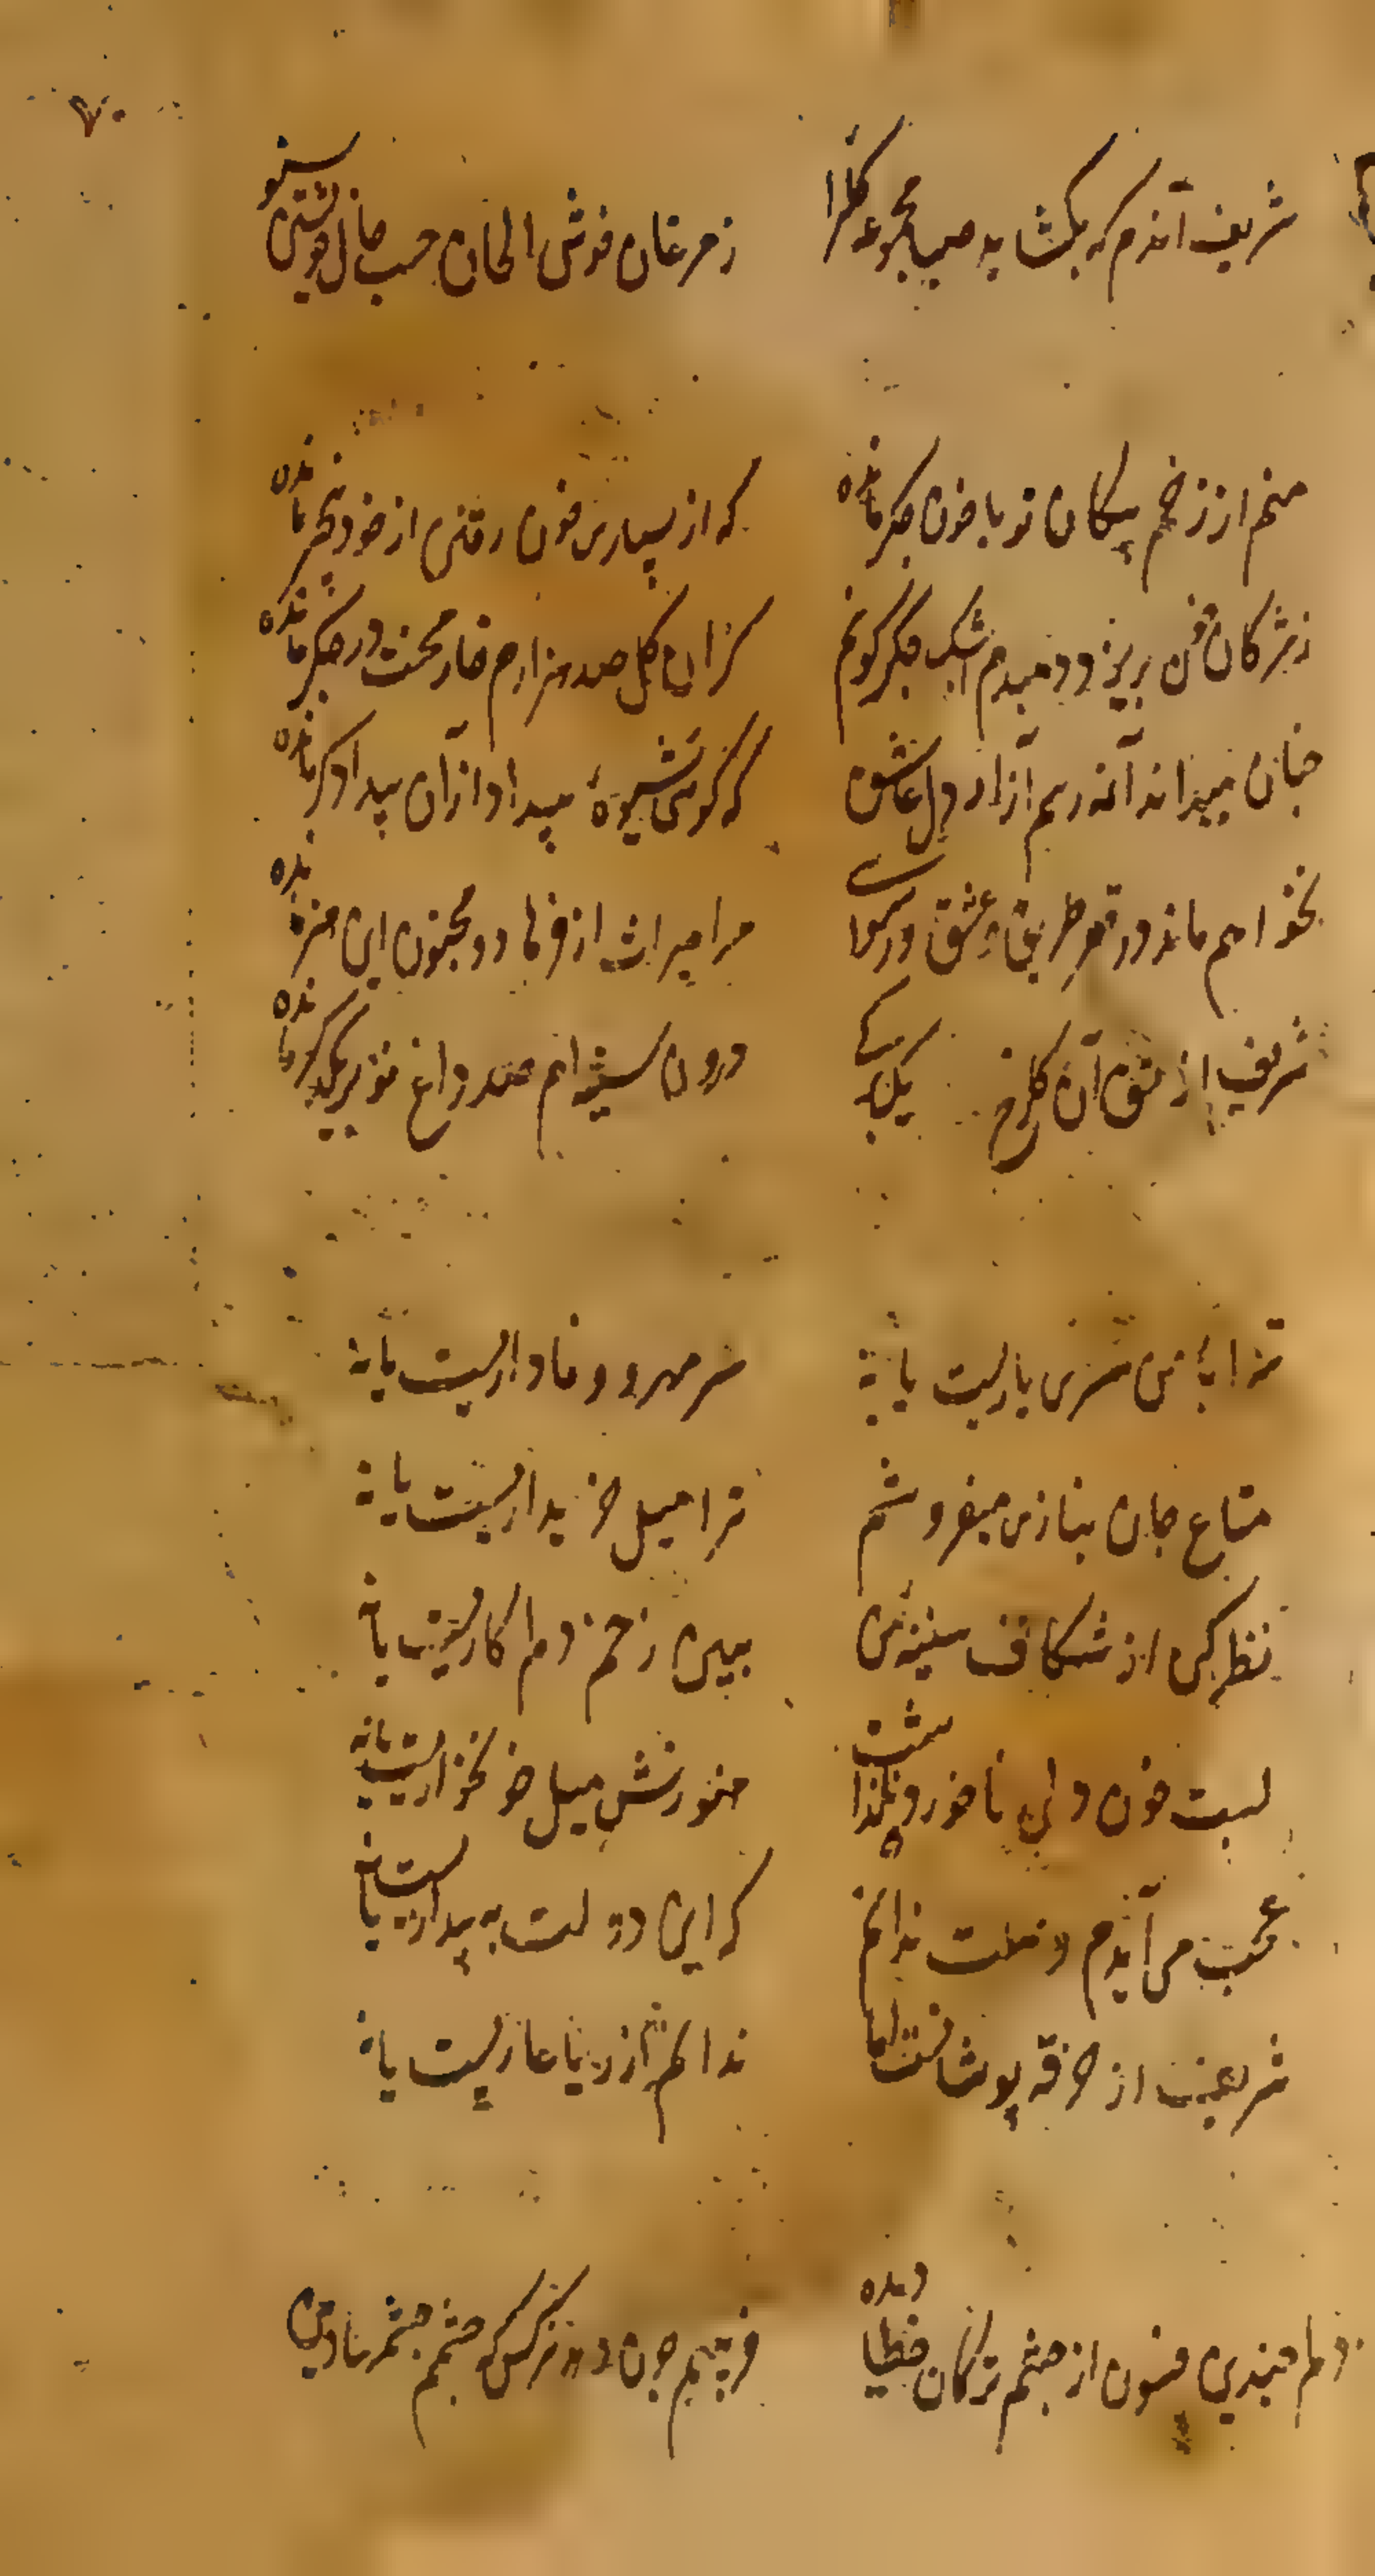 ۷۰
شریف آندم که بکشاید صبا مجموعه گلرا
ز مرغان خوش الحان حسب حال خویشتن شنو
منم از زخم پیکان تو با خون جکر مانده
که از بسیاری خون رفتن از خود بیخبر مانده
ز مژکان خون بریزد دمبدم اشک جکرکونم
کزان کل صد هزارم خار محنت در جکر مانده
چنان میداند آنمه رسم آزار دل عاشق
که کوئی شیوهٔ بیداد ازان بیدادکر مانده
نخواهم ماند در قعر طریق عشق و رسوایی
مرا میراث از فرهاد و مجنون این هنر مانده
شریف از عشق آن کلرخ یکایک
درون سینه ام صد داغ نو بر یکدیکر مانده
ترا با من سر یاریست یا نه
سر مهر و وفاداریست یا نه
متاع جان بنازی میفروشم
ترا میل خریداریست یا نه
نظر کن از شکاف سینهٔ من
ببین زخم دلم کاریست یا نه
لبت خون دلی ناخورده نکذاشت
هنوزش میل خونخواریست یا نه
عجب می آیدم وصلت ندانم
که این دولت به بیداریست یا نه
شریف از خرقه پوشانست اما
ندانم از ریا عاریست یا نه
دلم چندین فسون از چشم ترکان خطا دیده